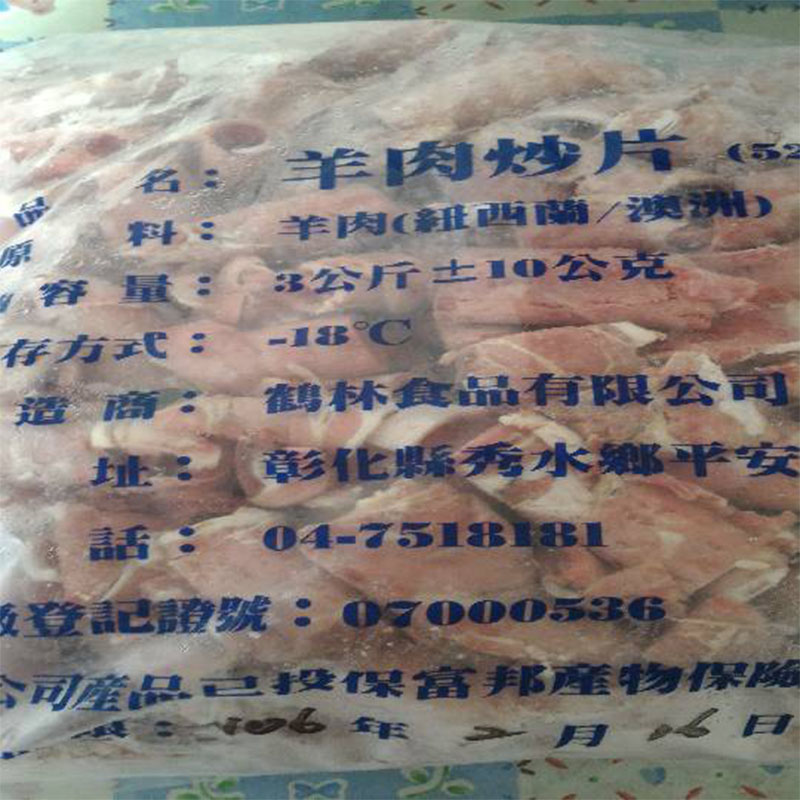 品 名： 羊肉炒片 (52
原 料： 羊肉(紐西蘭/澳洲)
容 量： 3公斤±10公克
存方式： -18℃
造 商： 鶴林食品有限公司
址： 彰化縣秀水鄉平安
話： 04-7518181
登記證號：07000536
公司產品已投保富邦產物保險
：106年2月16日